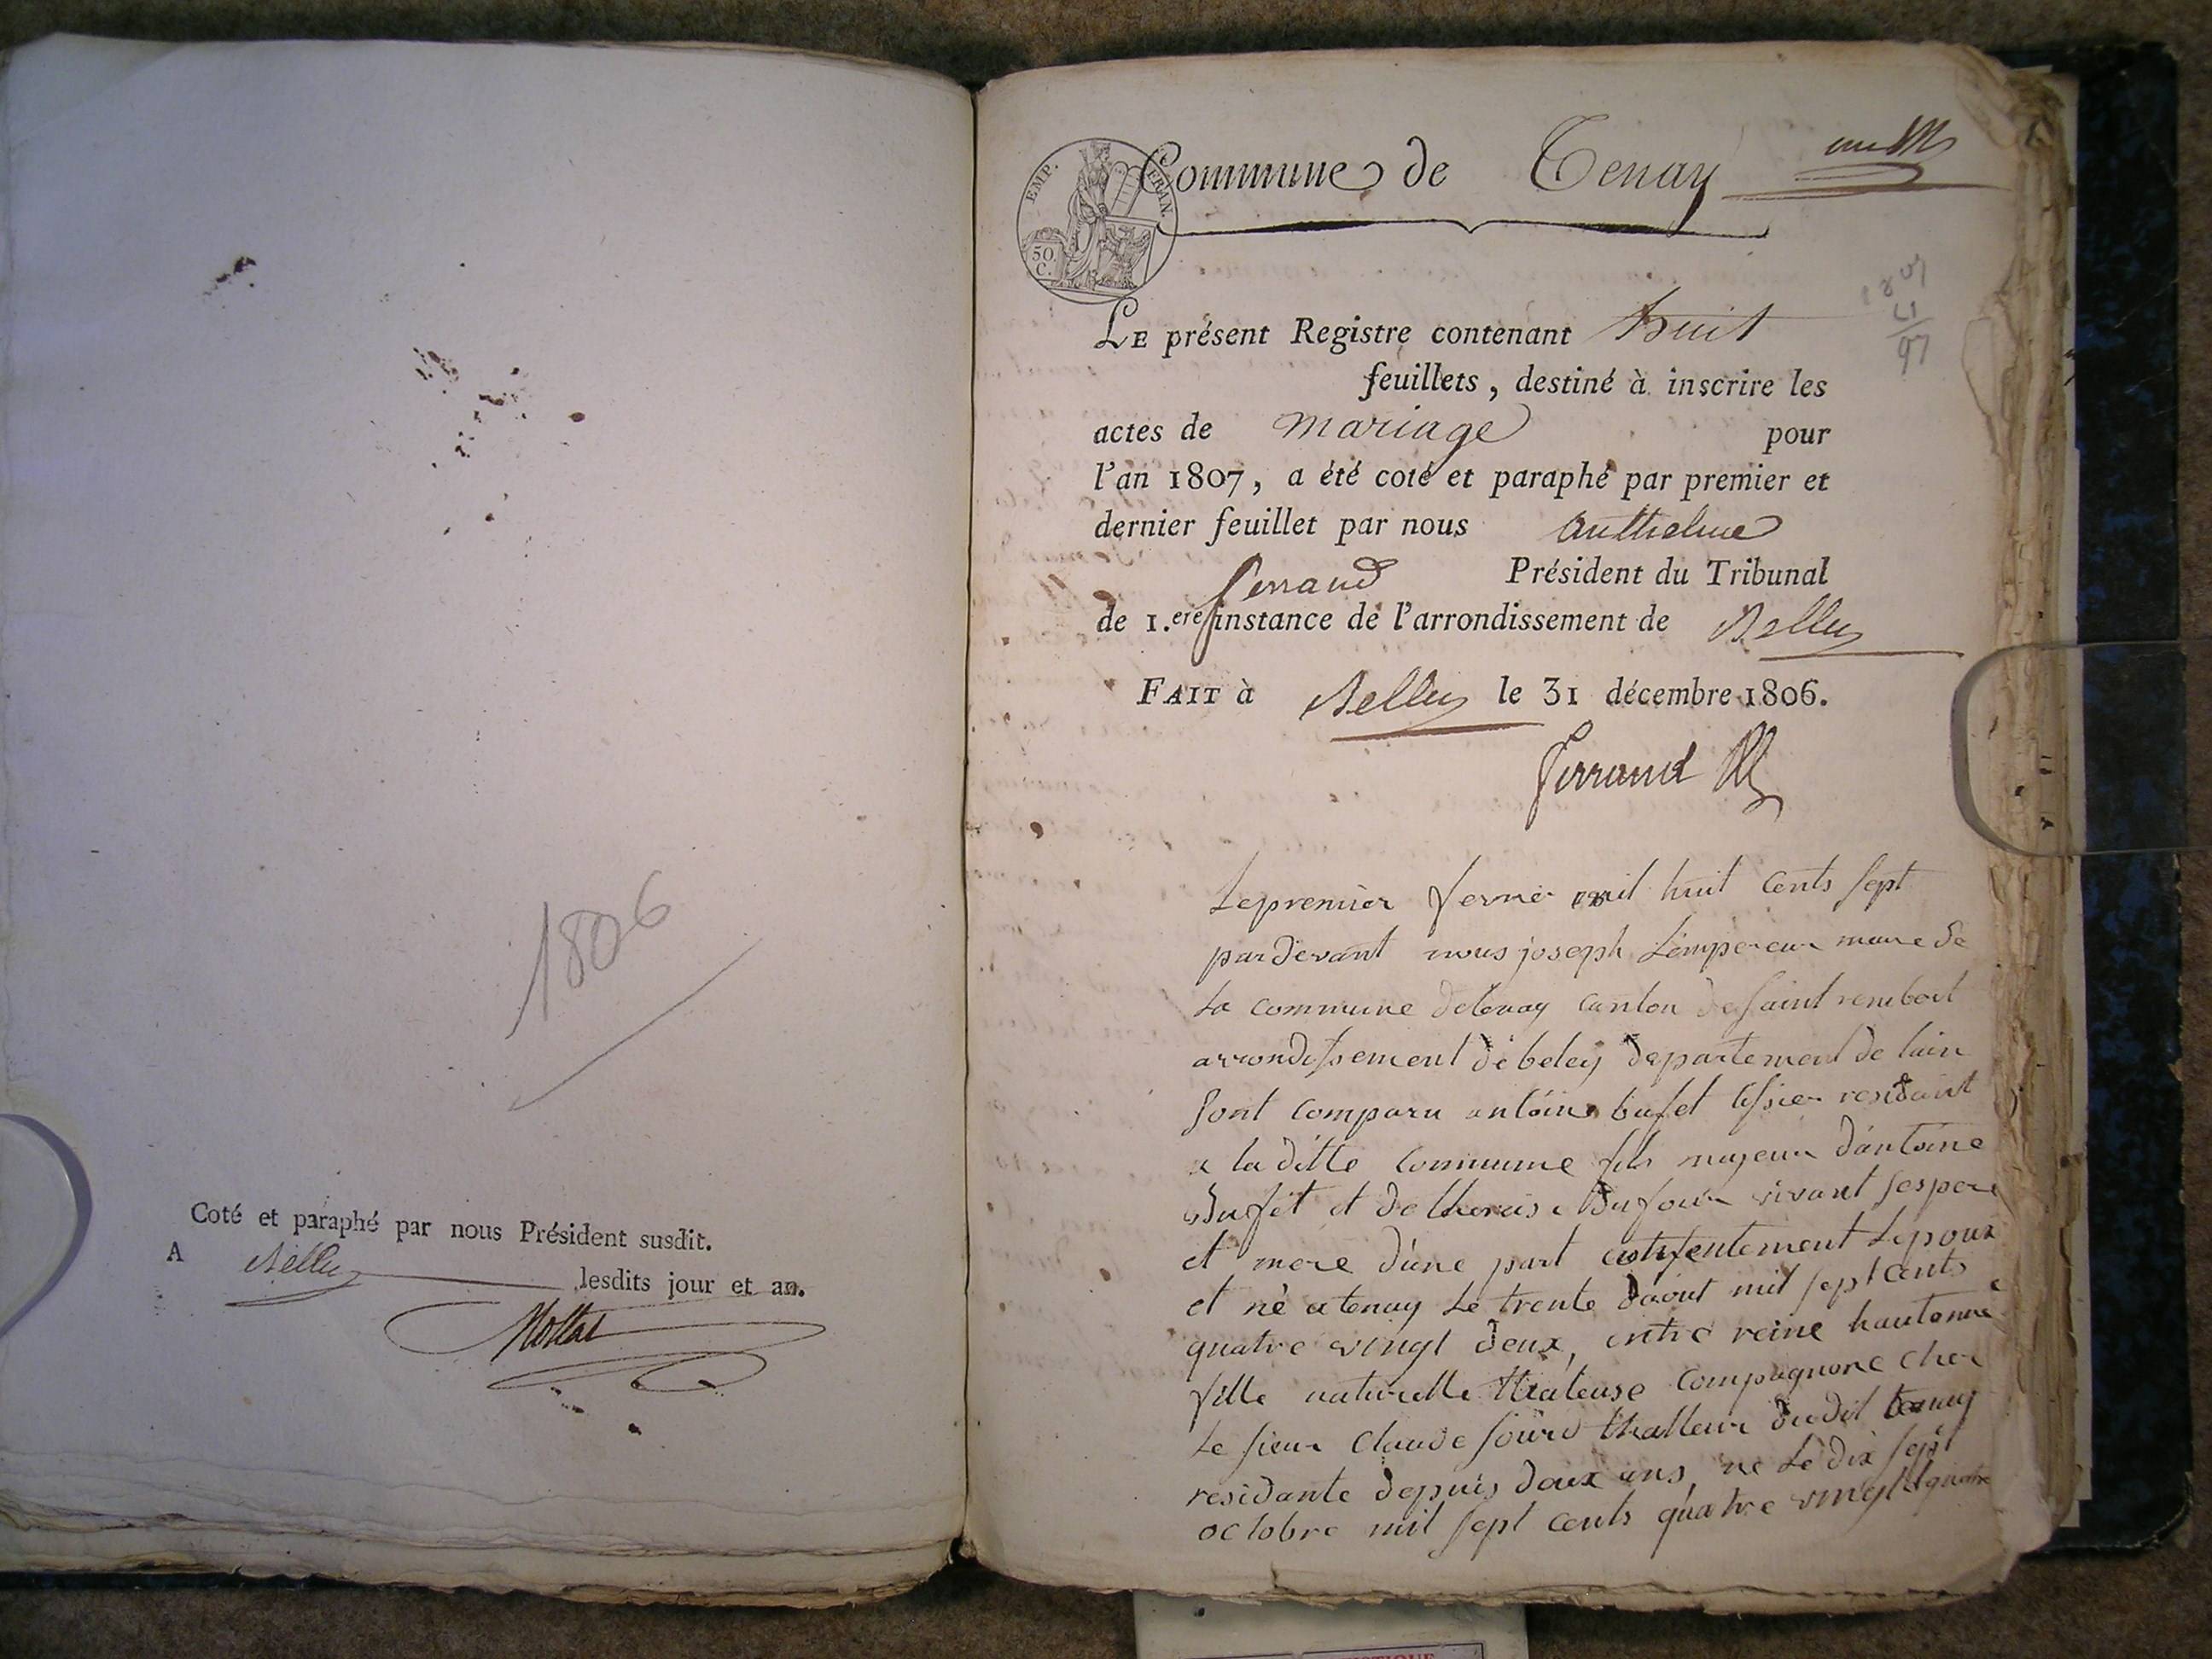 1806
Coté et paraphé par nous Président susdit.
A Belley lesdits jour et an.
EMP. FRAN.
50 C.
Commune de Tenay
Le présent Registre contenant huit
feuillets, destiné à inscrire les
actes de mariage pour
l'an 1807, a été coté et paraphé par premier et
dernier feuillet par nous Anthelme
Ferrand Président du Tribunal
de 1.ere instance de l'arrondissement de Belley
Fait à Belley le 31 décembre 1806.
Ferrand
Le premier fevrier mil huit cents sept
pardevant nous joseph Lempereur maire de
La commune detenay canton de saint rembert
arrondissement de beley departement de lain
sont comparu antoine bufet tissier residant
a la ditte commune fils majeur d'antoine
Bufet et de therese Dufour vivant ses pere
et mere d'une part consentement Lepoux
et né a tenay Le trente d'aout mil sept cents
quatre vingt deux, entre reine hautonne
fille naturelle compagnone chez
Le sieur Claude dudit tenay
residante depuis deux ans, ne Le dix sept
octobre mil sept cents quatre vingt quatre